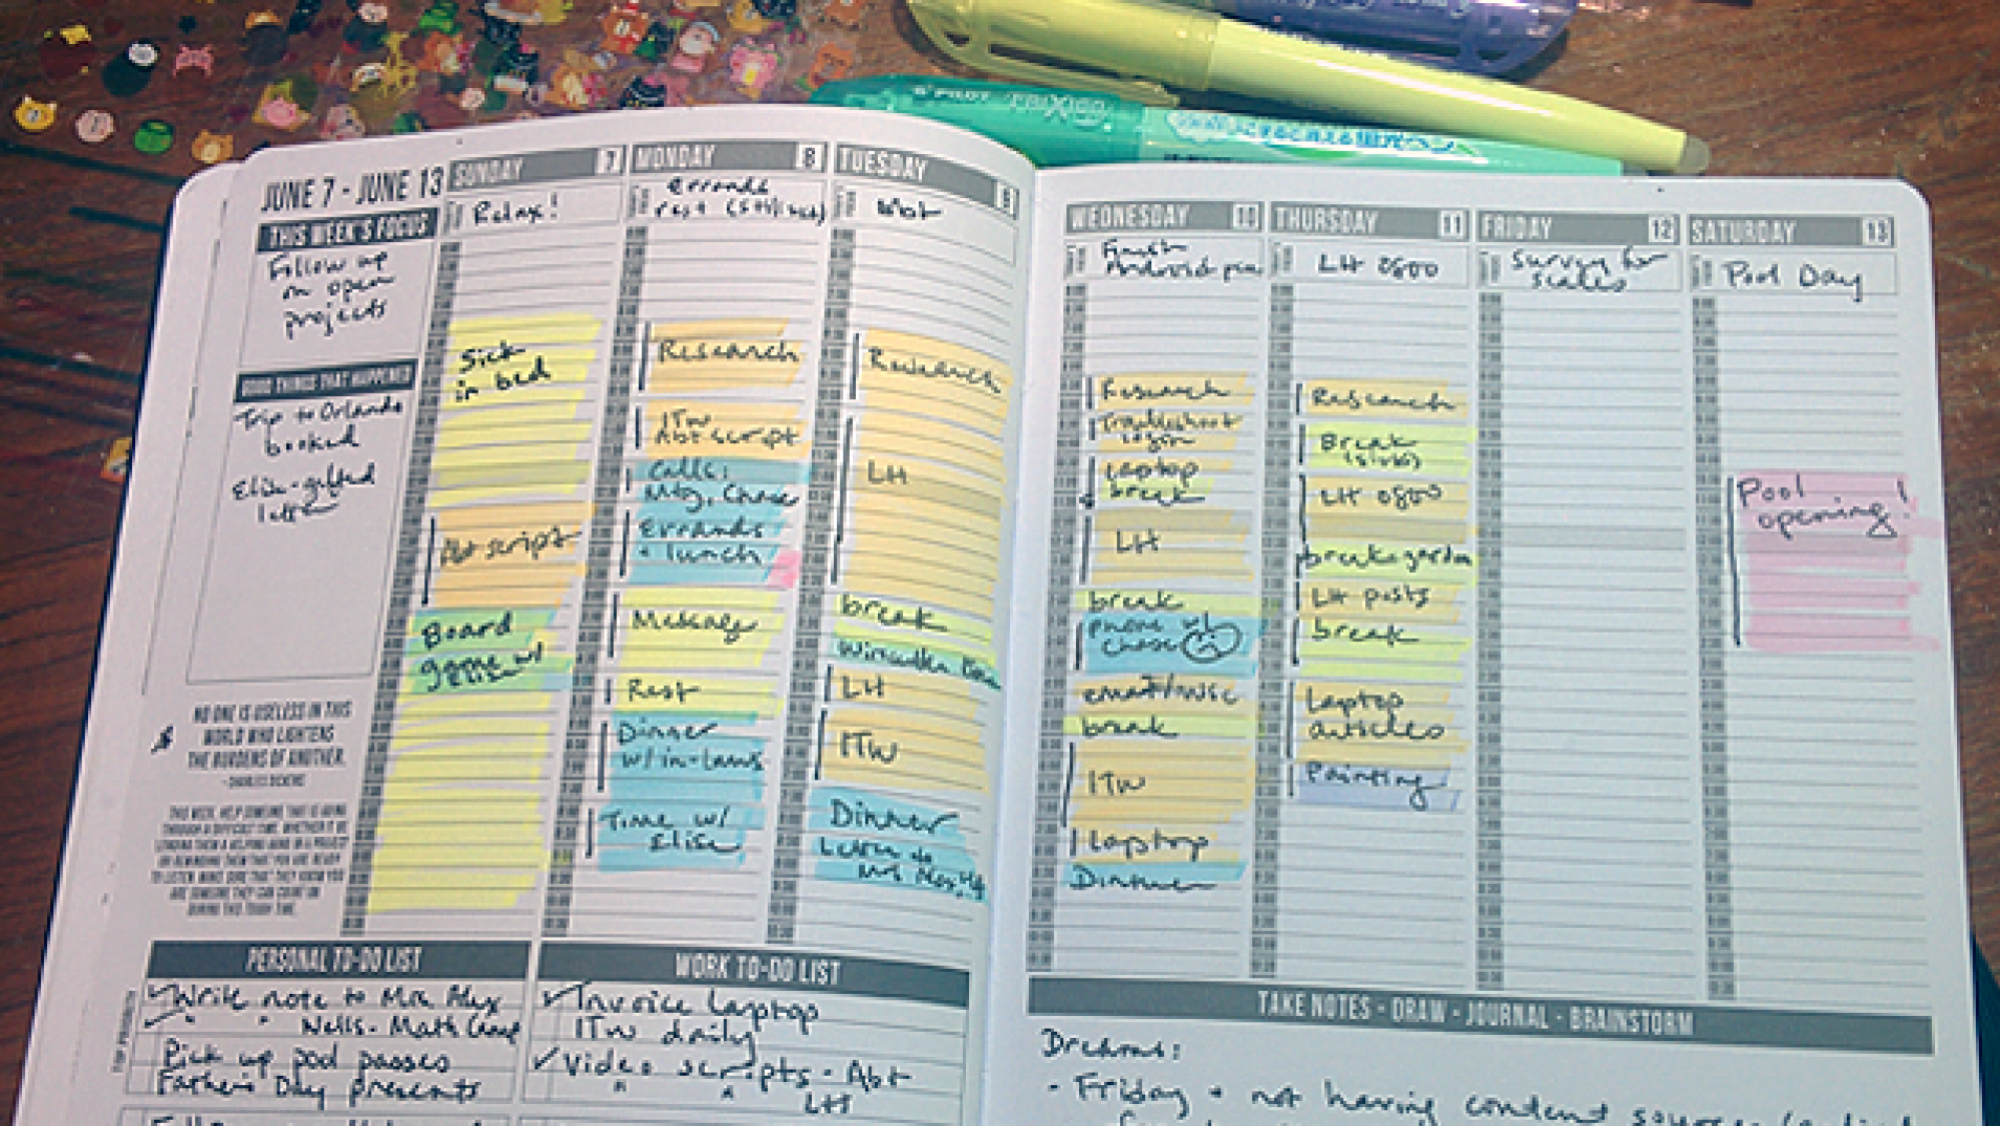 PILOT FRIXION
JUNE 7 - JUNE 13
THIS WEEK'S FOCUS
Follow up
on open
projects
GOOD THINGS THAT HAPPENED
Trip to Orlando
booked
Elise-gifted
letter
NO ONE IS USELESS IN THIS
WORLD WHO LIGHTENS
THE BURDENS OF ANOTHER.
- CHARLES DICKENS
THIS WEEK, HELP SOMEONE THAT IS GOING
THROUGH A DIFFICULT TIME. WHETHER IT BE
LENDING THEM A HELPING HAND IN A PROJECT
OR REMINDING THEM THAT YOU ARE READY
TO LISTEN, MAKE SURE THAT THEY KNOW YOU
ARE SOMEONE THEY CAN COUNT ON
DURING THIS TOUGH TIME.
SUNDAY 7
Relax!
Sick
in bed
Abt script
Board
game w/
Elise
MONDAY 8
errands
rest
Research
ITW
Abt script
Calls:
Mtg, Chase
Errands
+ lunch
Rest
Dinner
w/in-laws
Time w/
Elise
TUESDAY 9
Research
LH
break
LH
ITW
Dinner
Letter to
Mrs
WEDNESDAY 10
Finish
Android
Research
Troubleshoot
login
Laptop
break
LH
break
phone w/
Chase
email/misc
break
ITW
Laptop
Dinner
THURSDAY 11
LH 0800
Research
Break
LH 0800
break-garden
LH posts
break
Laptop
articles
Painting
FRIDAY 12
Survey for
scales
SATURDAY 13
Pool Day
Pool
opening!
PERSONAL TO-DO LIST
TOP PRIORITY
Write note to Mrs. Alex
" " Nells - Math Camp
Pick up pool passes
Father's Day presents
WORK TO-DO LIST
Invoice laptop
ITW daily
Video scripts - Abt
" " LH
TAKE NOTES - DRAW - JOURNAL - BRAINSTORM
Dreams:
- Friday + not having content